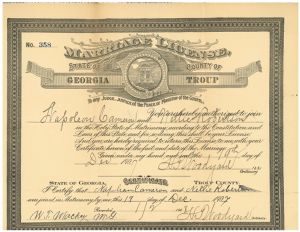 No. 358
MARRIAGE LICENSE.
STATE OF COUNTY OF
GEORGIA TROUP
To any Judge, Justice of the Peace, or Minister of the Gospel
You are hereby authorized to join
Napoleon Cameron and
in the Holy State of Matrimony, according to the Constitution and
Laws of this State and for so doing this shall be your License
And you are hereby required to return this License to me with your
Certificate hereon of the fact and date of the Marriage.
Given under my hand and seal this
Dec
Ordinary
Certificate
STATE OF GEORGIA, TROUP COUNTY.
I Certify that Napoleon Cameron and
were joined in Matrimony by me this 19 day of Dec
Recorded
Ordinary